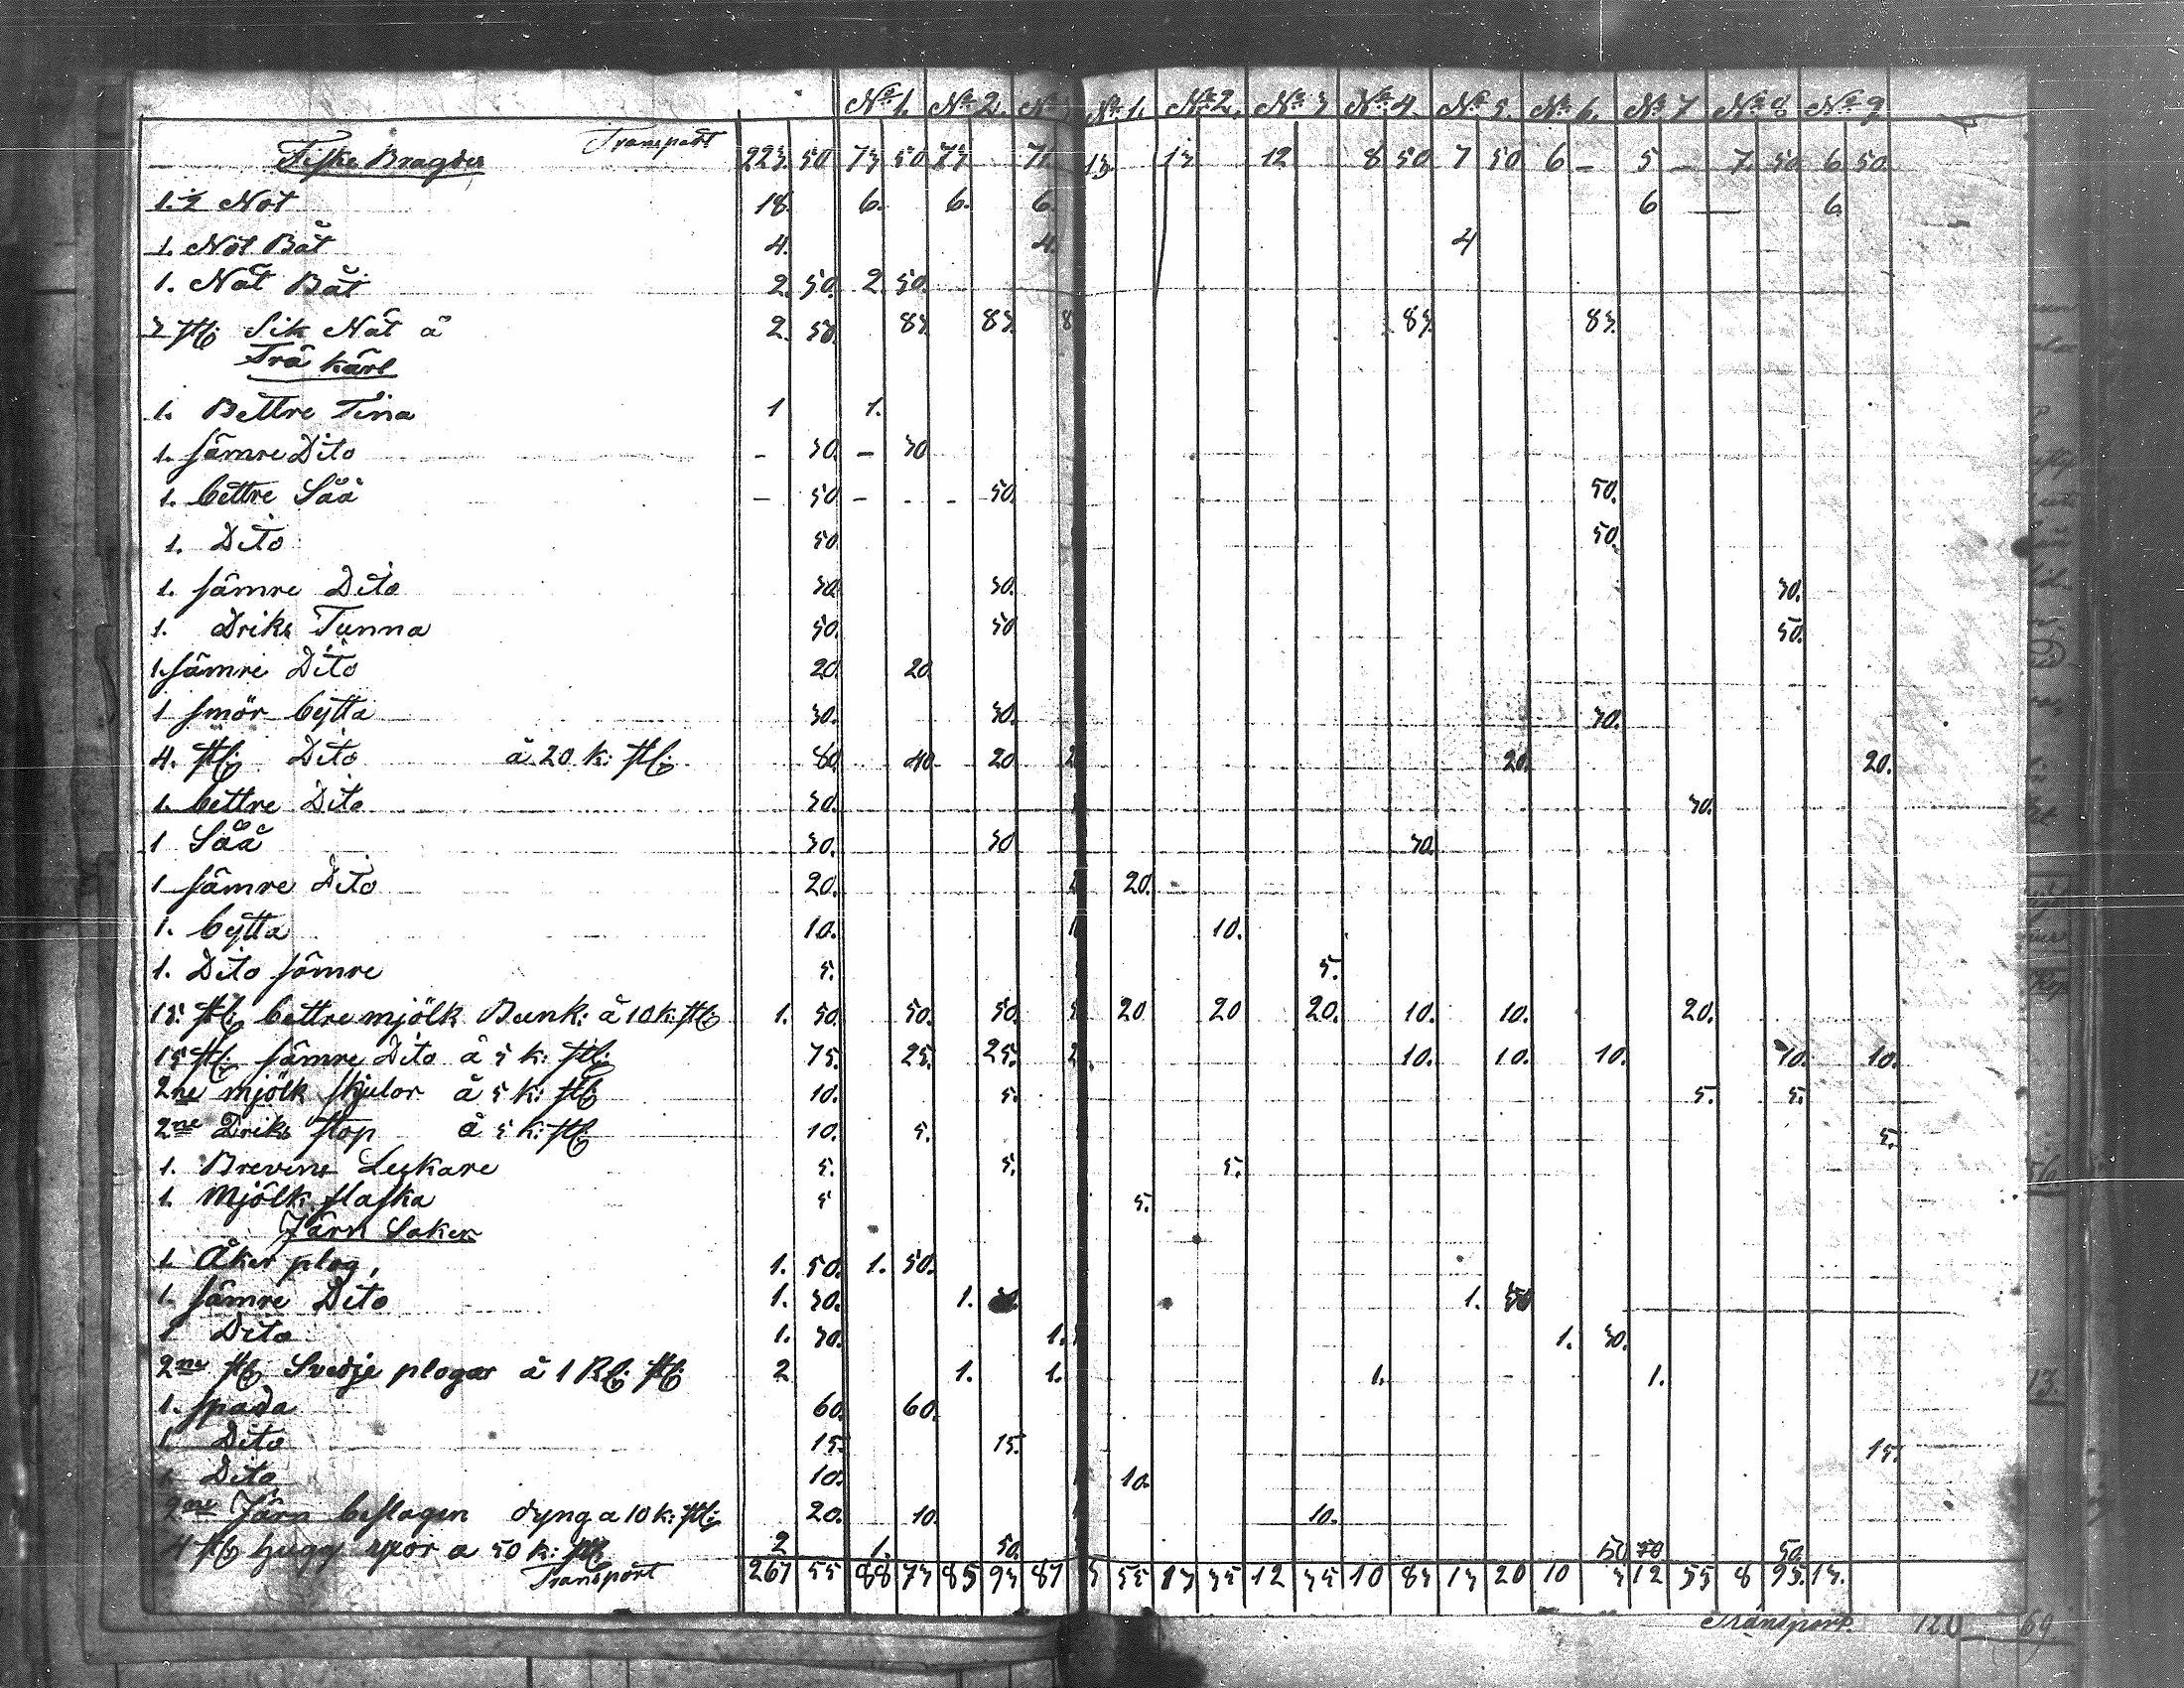 No 1. No 2. No No 1. No 2. No 3 No 4. No 5. No 6. No 7 No 8 No 9
Transport
Fiske Bragder 223. 50 73 50 73 71 13 13 12 8 50 7 50 6 – 5 – 7. 50 6 50.
1.½ Not 18. 6. 6. 6. 6 6.
1. Not Båt 4. 4. 4
1. Nät Båt 2. 50. 2. 50.
3 st: Sik Nät á 2. 50. 83. 83. 8 83. 83.
Trä kärl
1. Bettre Tina 1 1.
1. sämre Dito – 30. – 30
1. bettre Såå – 50. – – 50. 50.
1. Dito 50. 50.
1. sämre Dito 30. 30. 30.
1. Driks Tunna 50. 50 50.
1. sämre Dito 20. 20.
1 smör bytta 30. 30. 30.
4. st: Dito á 20 k: st: 80. 40 20 2 20. 20.
1. bettre Dito 30. 30.
1 Såå 30. 30 30.
1 sämre Dito 20. 2 20.
1. bytta 10. 1 10.
1. Dito sämre 5. 5.
15. st: bettre mjölk Bunk: á 10 k: st: 1. 50. 50. 50. 5 20 20 20. 10. 10. 20.
15 st: sämre Dito á 5 k: st: 75. 25. 25. 2 10. 10. 10. 10. 10.
2ne mjölk skjulor á 5 k: st: 10. 5. 5. 5.
2ne Driks stop á 5 k: st: 10. 5. 5.
1. Brevins Leckare 5. 5. 5.
1. Mjölk flaska 5 5.
Järn Saker
1. Åker plog, 1. 50. 1. 50.
1. sämre Dito 1. 30. 1. 1. 30
1 Dito 1. 30. 1. 1. 30.
2ne st: Svedje plogar á 1 Rl: st: 2 1. 1. 1. 1.
1. spada 60. 60.
1. Dito 15. 15. 15.
1. Dito 10. 10.
2ne Järn beslagen dyng a 10 k: st: 20. 10. 10.
4 st: hugg a 50 k: st: 2 1. 50. 50 50.
Transport 267 55 88 73 85 93 87 3 55 13 35 12 35 10 83 13 20 10 3 12 55 8 95. 13.
Transport. 120 69